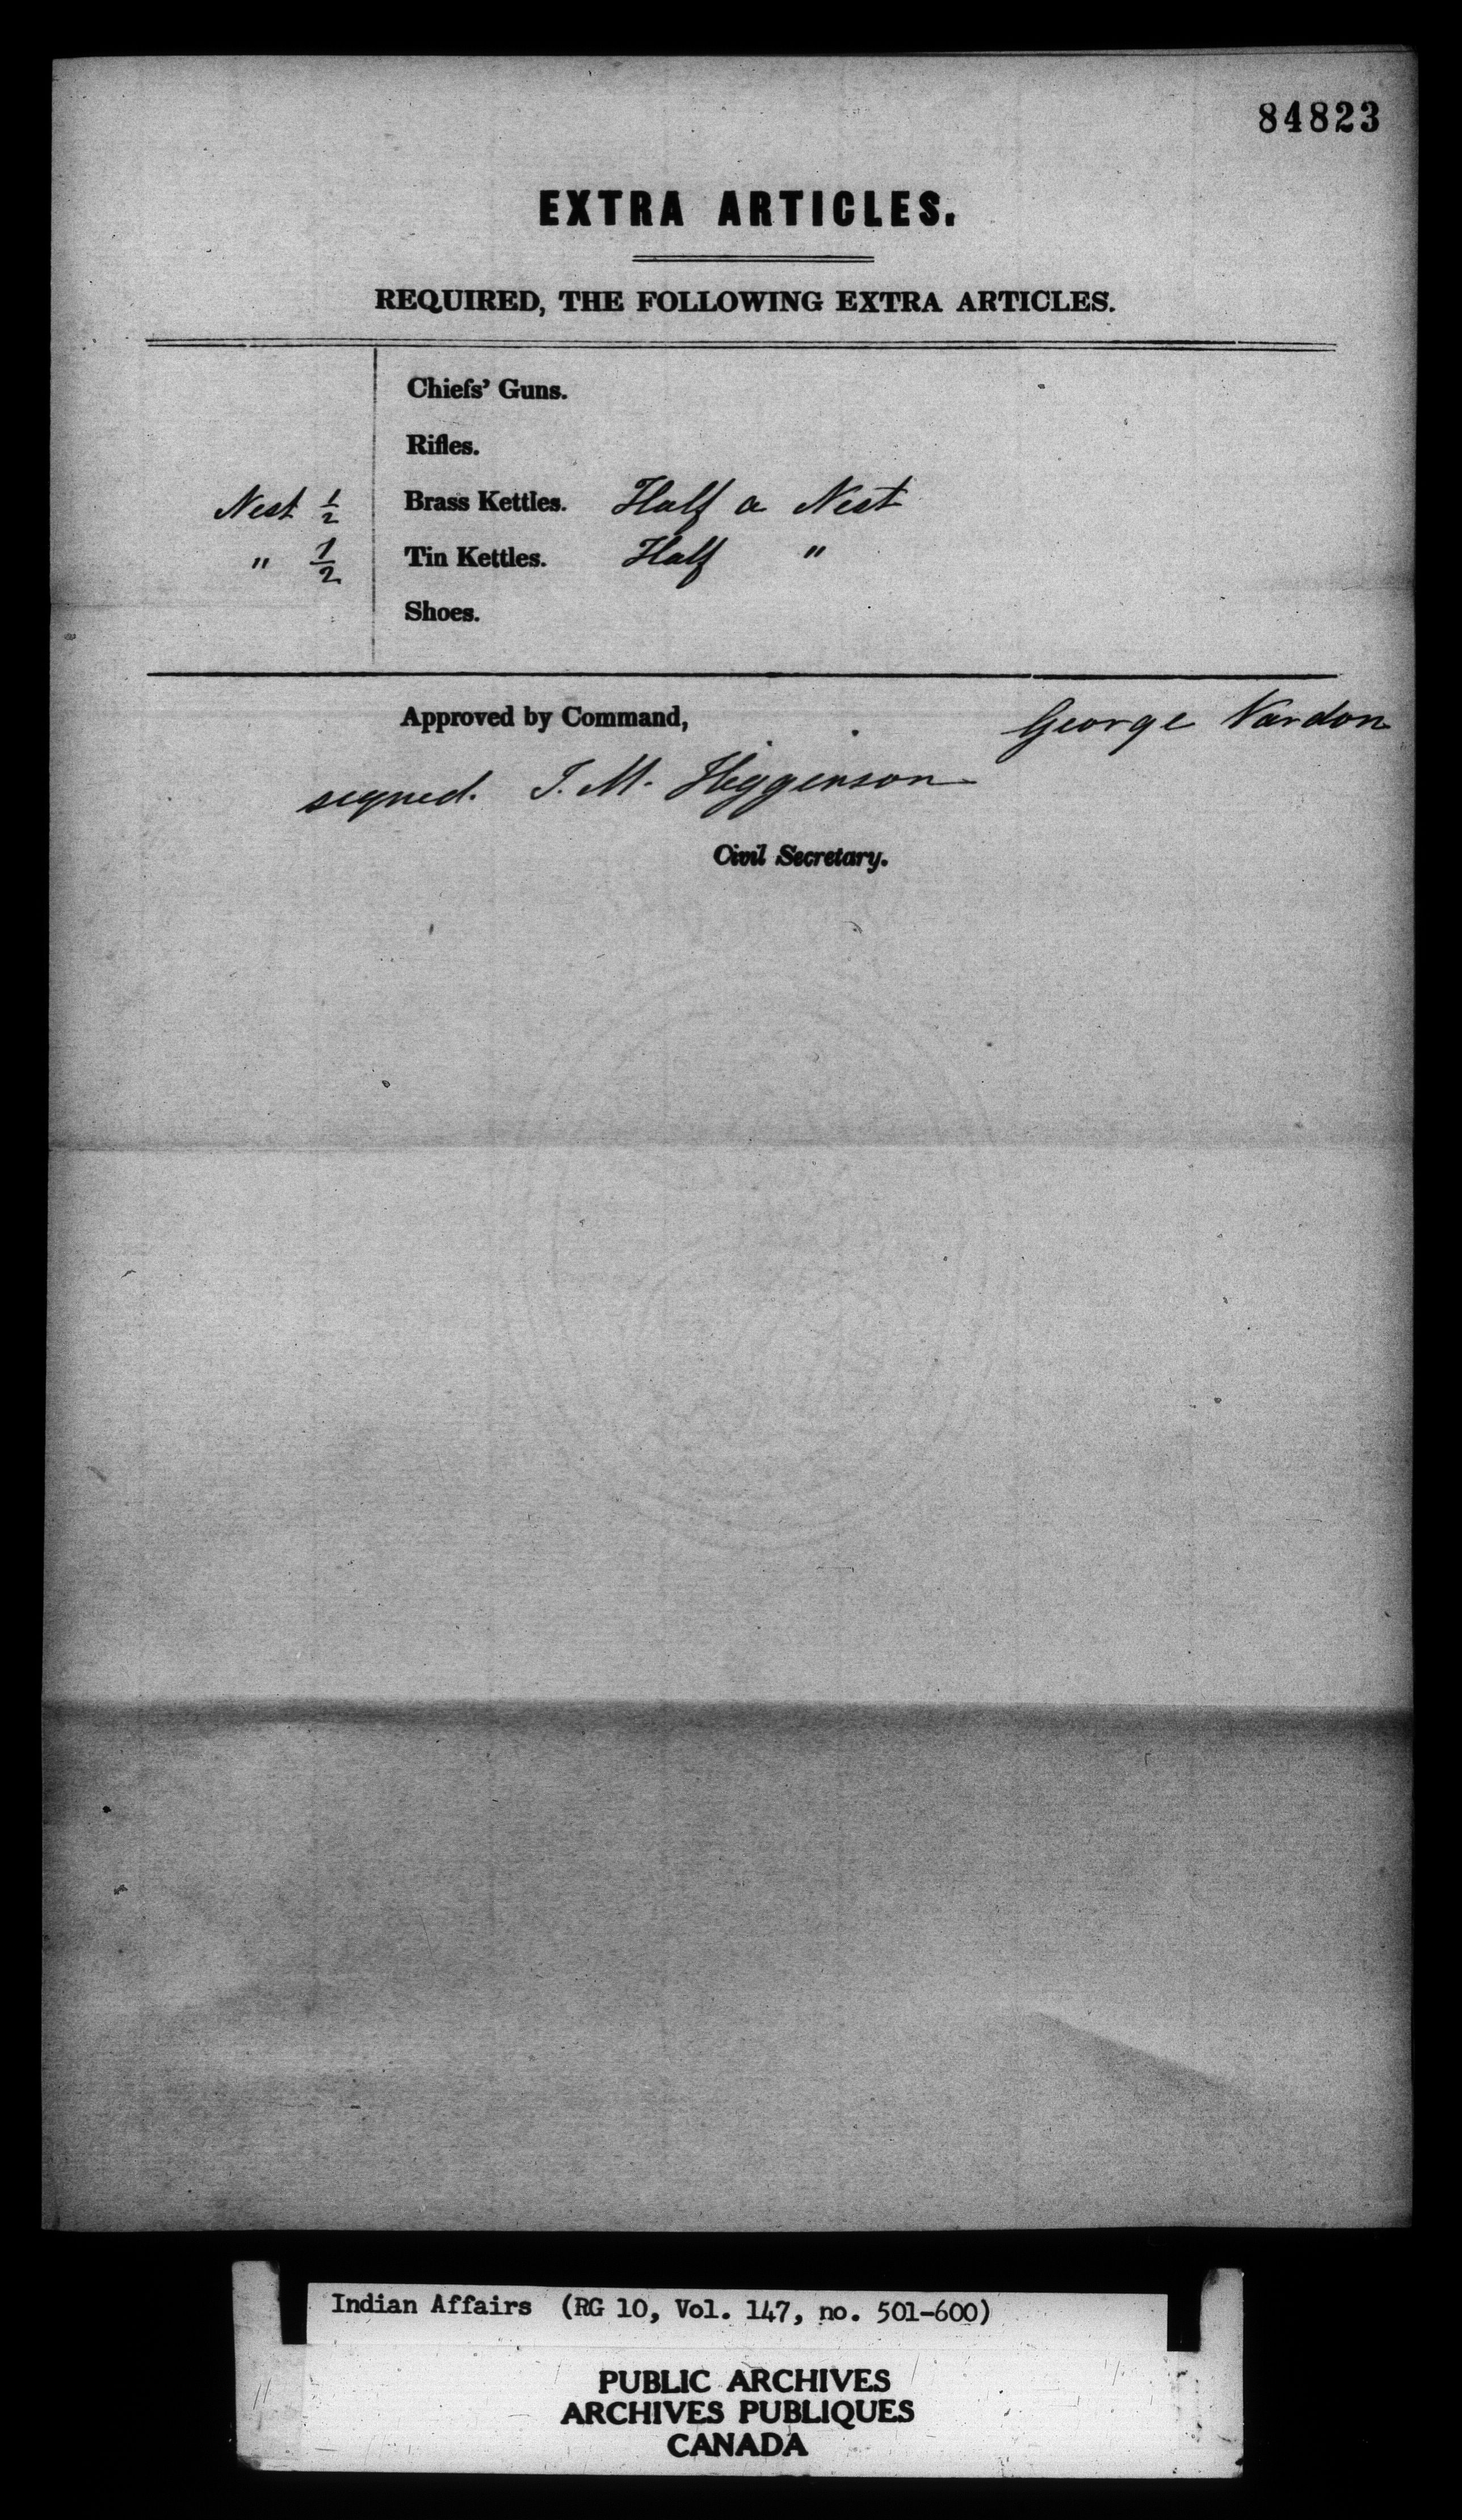 84823
EXTRA ARTICLES.
REQUIRED, THE FOLLOWING EXTRA ARTICLES.
Chiefs' Guns.
Rifles.
Nest ½ Brass Kettles. Half a Nest
" ½ Tin Kettles. Half "
Shoes.
Approved by Command, George Vardon
signed. J. M. Higginson
Civil Secretary.
Indian Affairs (RG 10, Vol. 147, no. 501-600)
PUBLIC ARCHIVES
ARCHIVES PUBLIQUES
CANADA